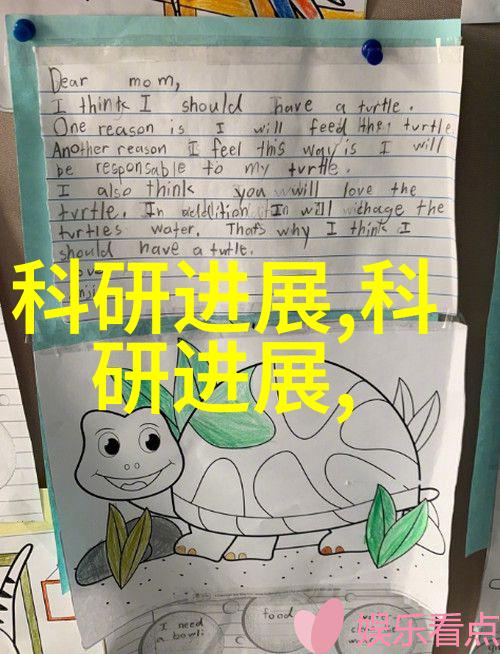 Dear mom,
I think I should have a turtle.
One reason is I will feed the turtle.
Another reason I feel this way is I will
be responsable to my turtle.
I also think you will love the
turtle. In addition I will chage the
turtles water. That's why I think I
should have a turtle.
科研进展,科
研进展,
I need
a bowl
food
娱乐看点